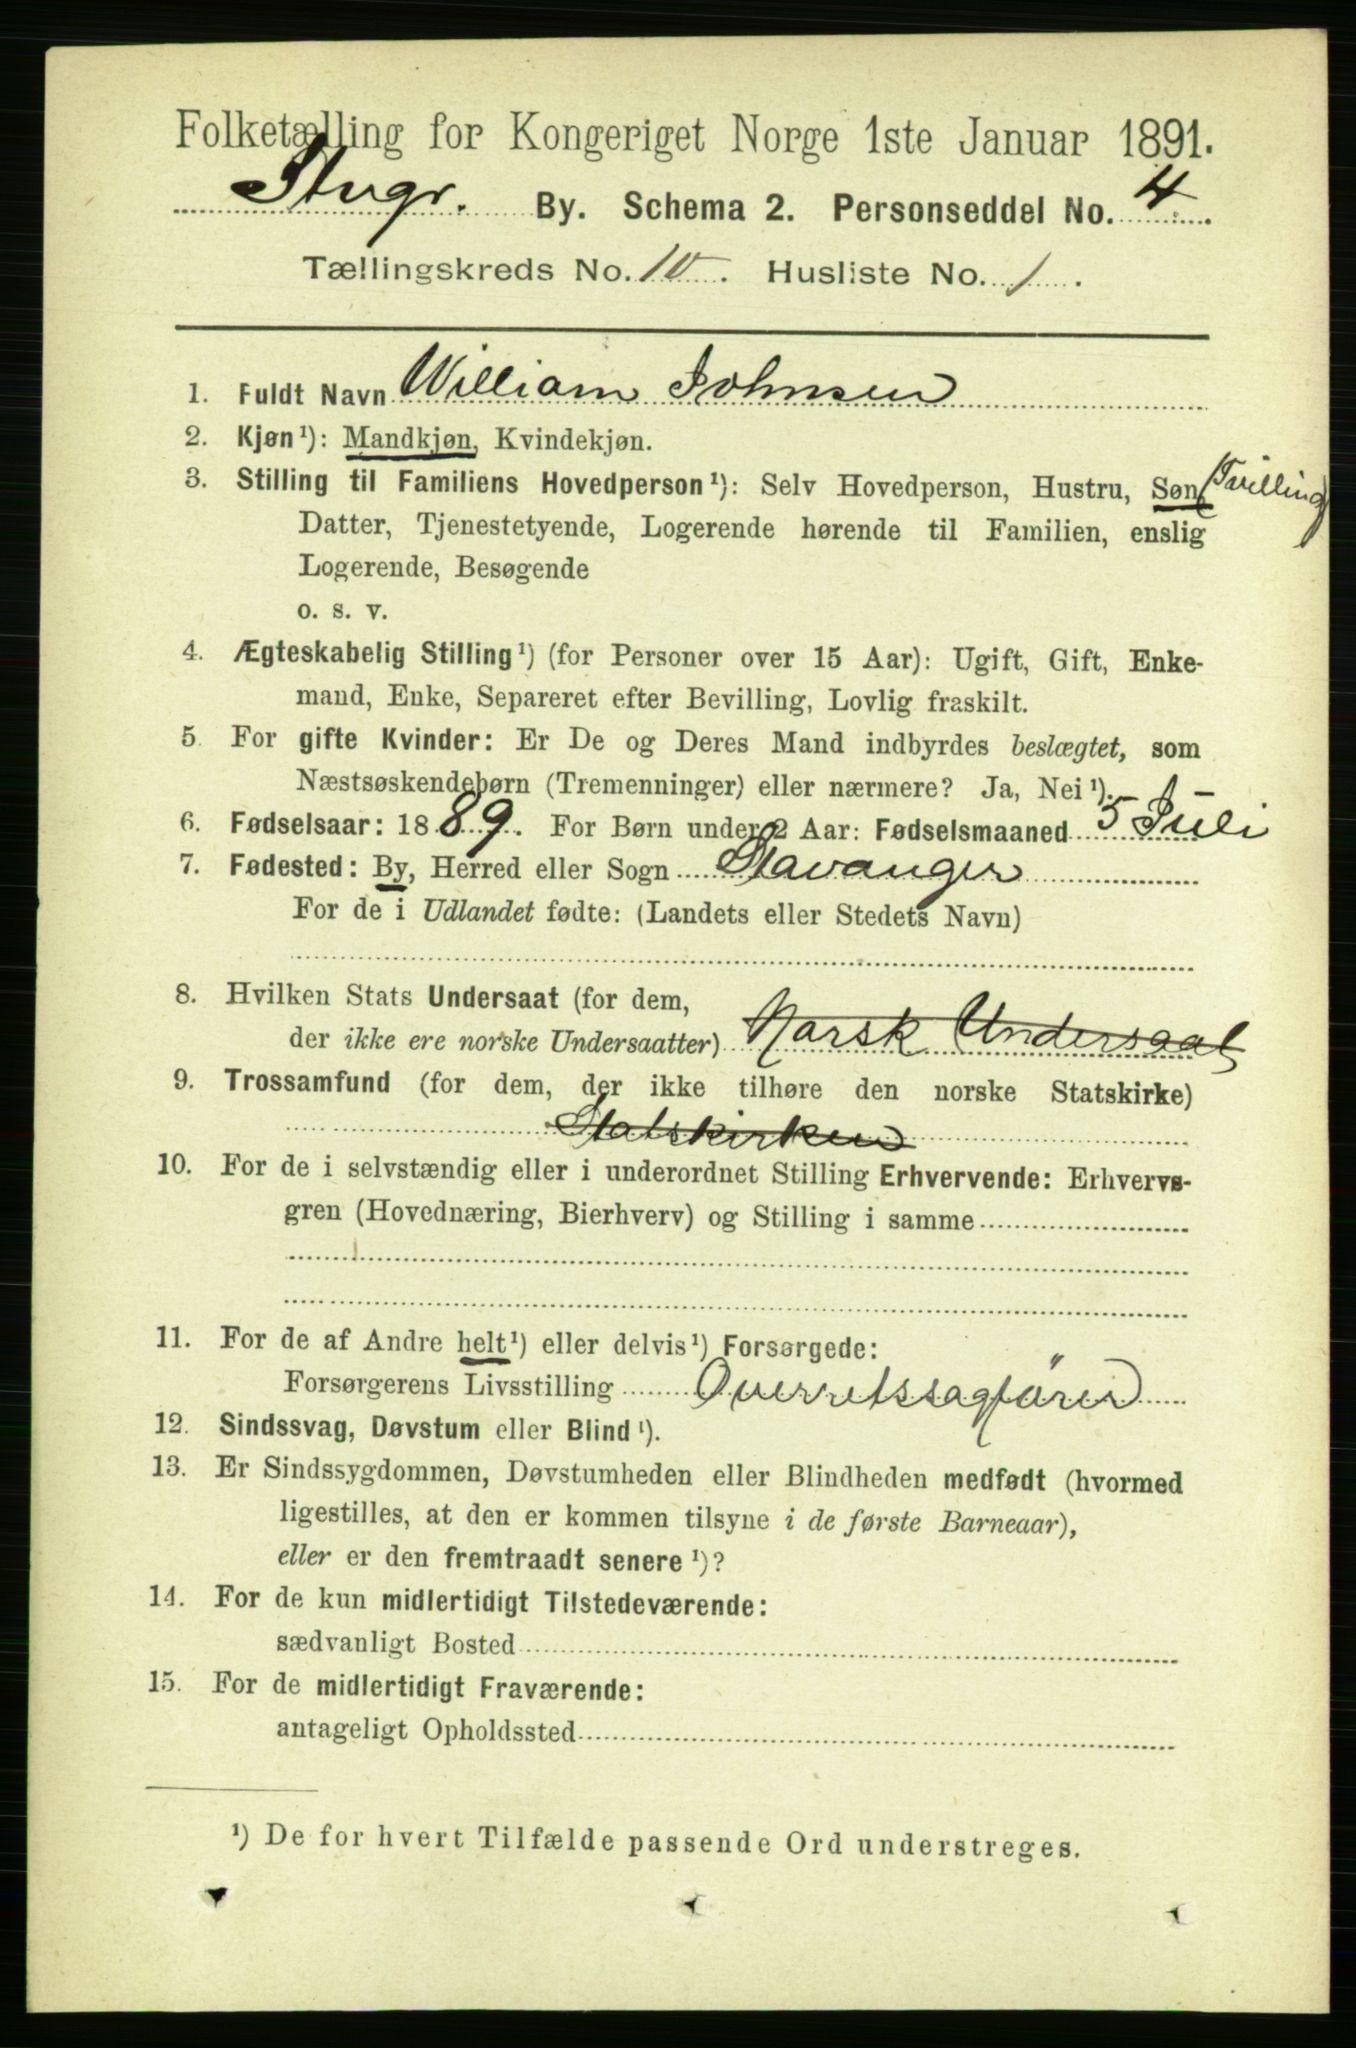 Folketælling for Kongeriget Norge 1ste Januar 1891.
Stvgr. By. Schema 2. Personseddel No. 4
Tællingskreds No. 10. Husliste No. 1.
1. Fuldt Navn William Johnsen
2. Kjøn¹): Mandkjøn, Kvindekjøn.
3. Stilling til Familiens Hovedperson¹): Selv Hovedperson, Hustru, Søn, (Tvilling)
Datter, Tjenestetyende, Logerende hørende til Familien, enslig
Logerende, Besøgende
o. s. v.
4. Ægteskabelig Stilling¹) (for Personer over 15 Aar): Ugift, Gift, Enke-
mand, Enke, Separeret efter Bevilling, Lovlig fraskilt.
5. For gifte Kvinder: Er De og Deres Mand indbyrdes beslægtet, som
Næstsøskendebørn (Tremenninger) eller nærmere? Ja, Nei¹).
6. Fødselsaar: 1889. For Børn under 2 Aar: Fødselsmaaned 5 Juli
7. Fødested: By, Herred eller Sogn Stavanger
For de i Udlandet fødte: (Landets eller Stedets Navn)
8. Hvilken Stats Undersaat (for dem,
der ikke ere norske Undersaatter) Norsk Undersaat
9. Trossamfund (for dem, der ikke tilhøre den norske Statskirke)
Statskirken
10. For de i selvstændig eller i underordnet Stilling Erhvervende: Erhvervs-
gren (Hovednæring, Bierhverv) og Stilling i samme
11. For de af Andre helt¹) eller delvis¹) Forsørgede:
Forsørgerens Livsstilling Overretssagfører
12. Sindssvag, Døvstum eller Blind¹).
13. Er Sindssygdommen, Døvstumheden eller Blindheden medfødt (hvormed
ligestilles, at den er kommen tilsyne i de første Barneaar),
eller er den fremtraadt senere¹)?
14. For de kun midlertidigt Tilstedeværende:
sædvanligt Bosted
15. For de midlertidigt Fraværende:
antageligt Opholdssted
¹) De for hvert Tilfælde passende Ord understreges.